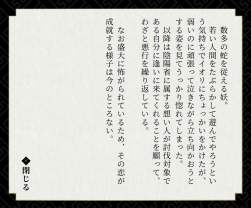 数多の蛇を従える妖。
若い人間をたぶらかして遊んでやろうとい
う気持ちでイオリにちょっかいをかけたが、
弱いのに頑張って泣きながら立ち向かおうと
する姿を見てうっかり惚れてしまった。
以降は陰陽省に属する想い人が討伐対象で
ある自分に逢いに来てくれることを願って、
わざと悪行を繰り返している。
なお盛大に怖がられているため、その恋が
成就する様子は今のところない。
閉じる